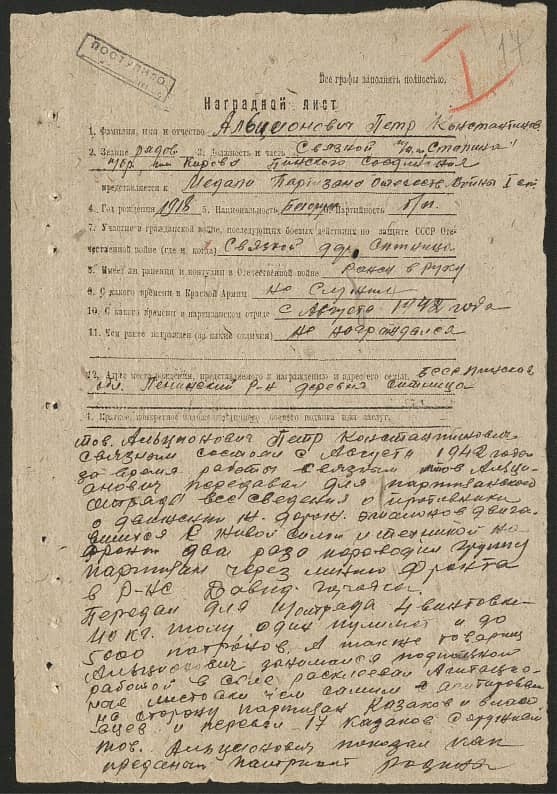 ПОСТУПИЛО
17
Все графы заполнять полностью.
Наградной лист
1. Фамилия, имя и отчество Альционович Петр Константинов.
2. Звание рядов 3. Должность и часть Связной "им. Сталина"
бр. им Кирова Пинского Соединения
представляется к Медали Партизана Отечеств. Войны I ст.
4. Год рождения 1918 5. Национальность Белорус Партийность б/п.
7. Участие в гражданской войне, последующих боевых действиях по защите СССР Оте-
чественной войне (где и когда) Связной дер. Ситница
8. Имеет ли ранения и контузии в Отечественной войне ранен в руку
9. С какого времени в Красной Армии не Служил
10. С какого времени в партизанском отряде с Августа 1942 года
11. Чем ранее награжден (за какие отличия) не награждался
12. Адрес местожительства, представляемого к награждению и адрес его семьи БССР Пинской
обл. Ленинский р-н деревня Ситница
1. Краткое, конкретное изложение личного боевого подвига или заслуг.
тов. Альционович Петр Константинович
связным состоял с Августа 1942 года
за время работы связным тов Альци-
анович передавал для партизанского
отряда все сведения о противнике
о движении ж. дорож. эшалонов двига-
вшихся с живой силой и техникой на
фронт два раза переводил группу
партизан через линию фронта
в р-не Давид-городка.
Передал для отряда 4 винтовки
40 кг. толу, один пулимет и до
5000 патронов. А также товарищ
Альционович занимался подпольной
работой в селе расклеивал Агитацио-
ные листовки чем самим агитировал
на сторону партизан Казаков и власо-
вцев и перевел 17 казаков с оружием
тов. Альционович показал как
преданый патриот Родины